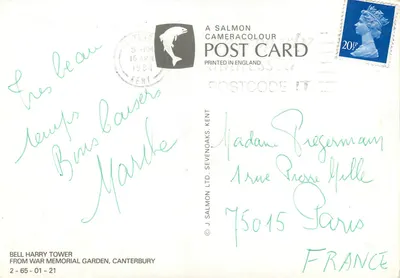 A SALMON
CAMERACOLOUR
POST CARD
PRINTED IN ENGLAND
KENT
POSTCODE IT
20½P
Tres beau
temps
Bons baisers
Marthe
Madame Pregermain
1 rue Pierre Mille
75015 Paris
FRANCE
© J SALMON LTD. SEVENOAKS. KENT
BELL HARRY TOWER
FROM WAR MEMORIAL GARDEN, CANTERBURY
2 - 65 - 01 - 21